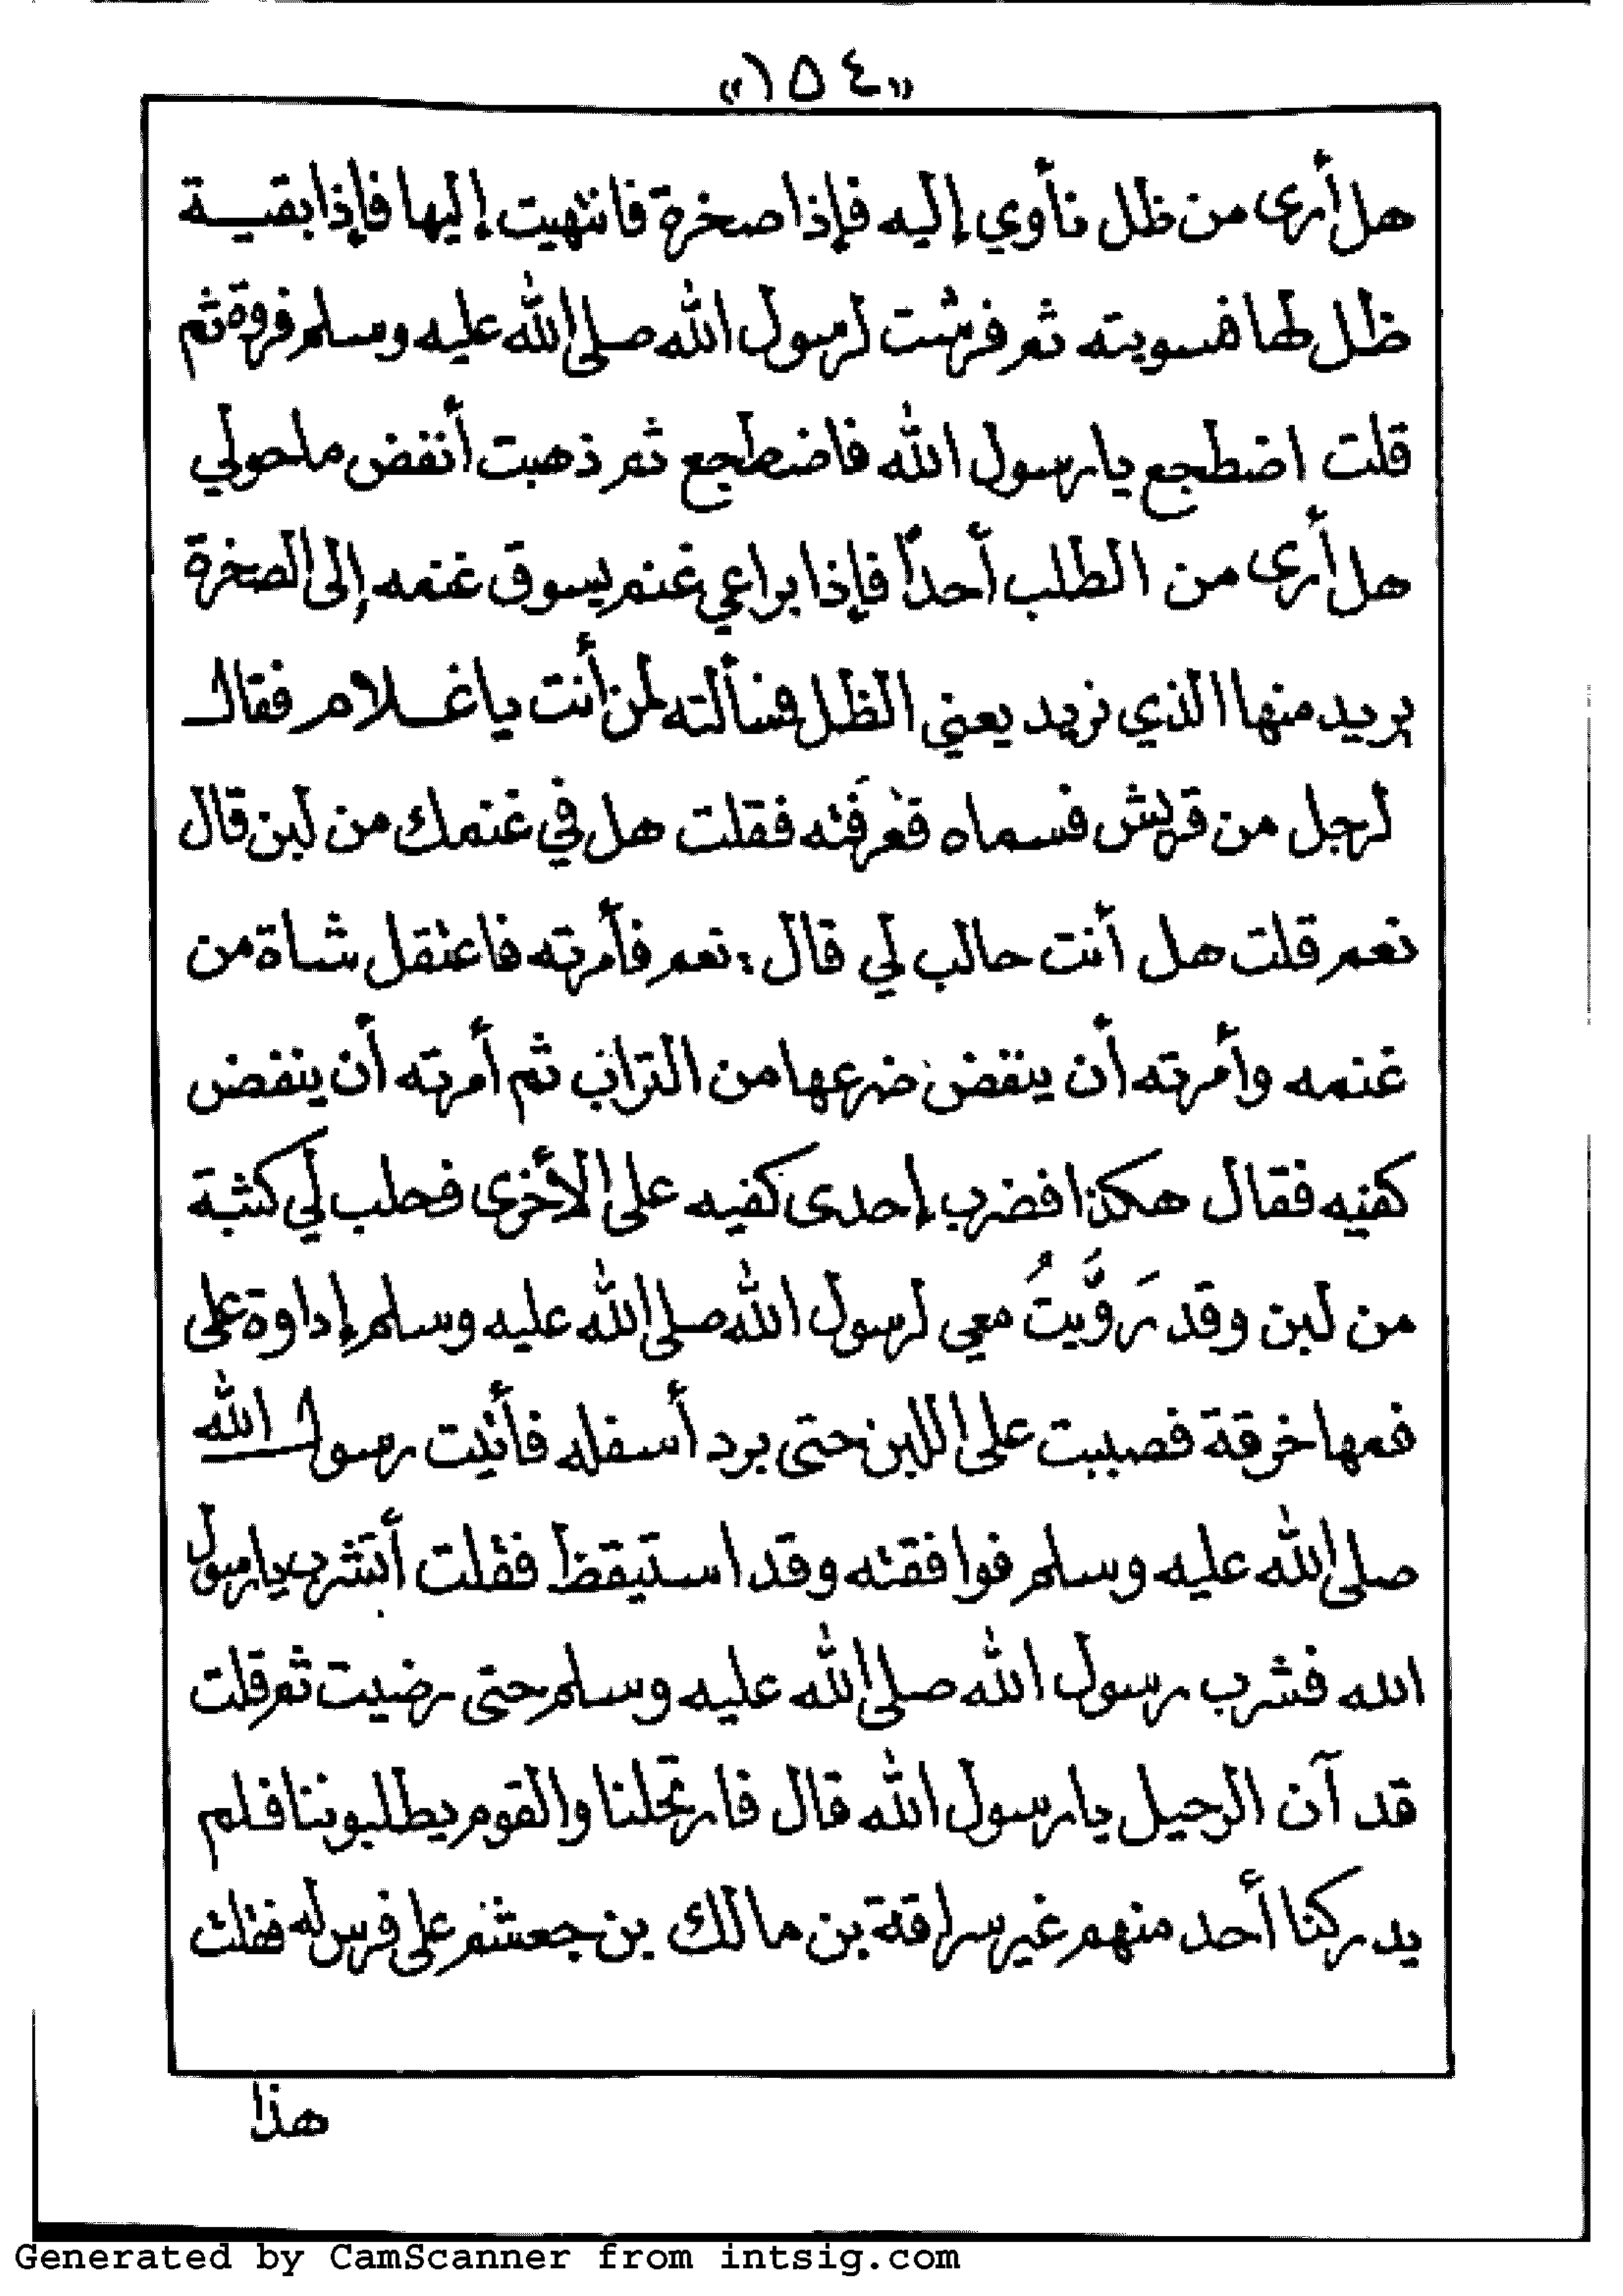 «١٥٤»
هل أرى من ظل نأوي إليه فإذا صخرة فانتهيت إليها فإذا بقية
ظل لها فسويته ثم فرشت لرسول الله صلى الله عليه وسلم فروة ثم
قلت اضطجع يا رسول الله فاضطجع ثم ذهبت أنفض ما حولي
هل أرى من الطلب أحداً فإذا براعي غنم يسوق غنمه إلى الصخرة
يريد منها الذي نريد يعني الظل فسألته لمن أنت يا غلام فقال
لرجل من قريش فسماه فعَرفته فقلت هل في غنمك من لبن قال
نعم قلت هل أنت حالب لي قال: نعم فأمرته فاعتقل شاة من
غنمه وأمرته أن ينفض ضرعها من التراب ثم أمرته أن ينفض
كفيه فقال هكذا فضرب إحدى كفيه على الأخرى فحلب لي كثبة
من لبن وقد رَوَّيتُ معي لرسول الله صلى الله عليه وسلم إداوة على
فمها خرقة فصببت على اللبن حتى برد أسفله فأتيت رسول الله
صلى الله عليه وسلم فوافقته وقد استيقظ فقلت أتشرب يا رسول
الله فشرب رسول الله صلى الله عليه وسلم حتى رضيت ثم قلت
قد آن الرحيل يا رسول الله قال فارتحلنا والقوم يطلبوننا فلم
يدركنا أحد منهم غير سراقة بن مالك بن جعشم على فرس له فقلت
هذا
Generated by CamScanner from intsig.com